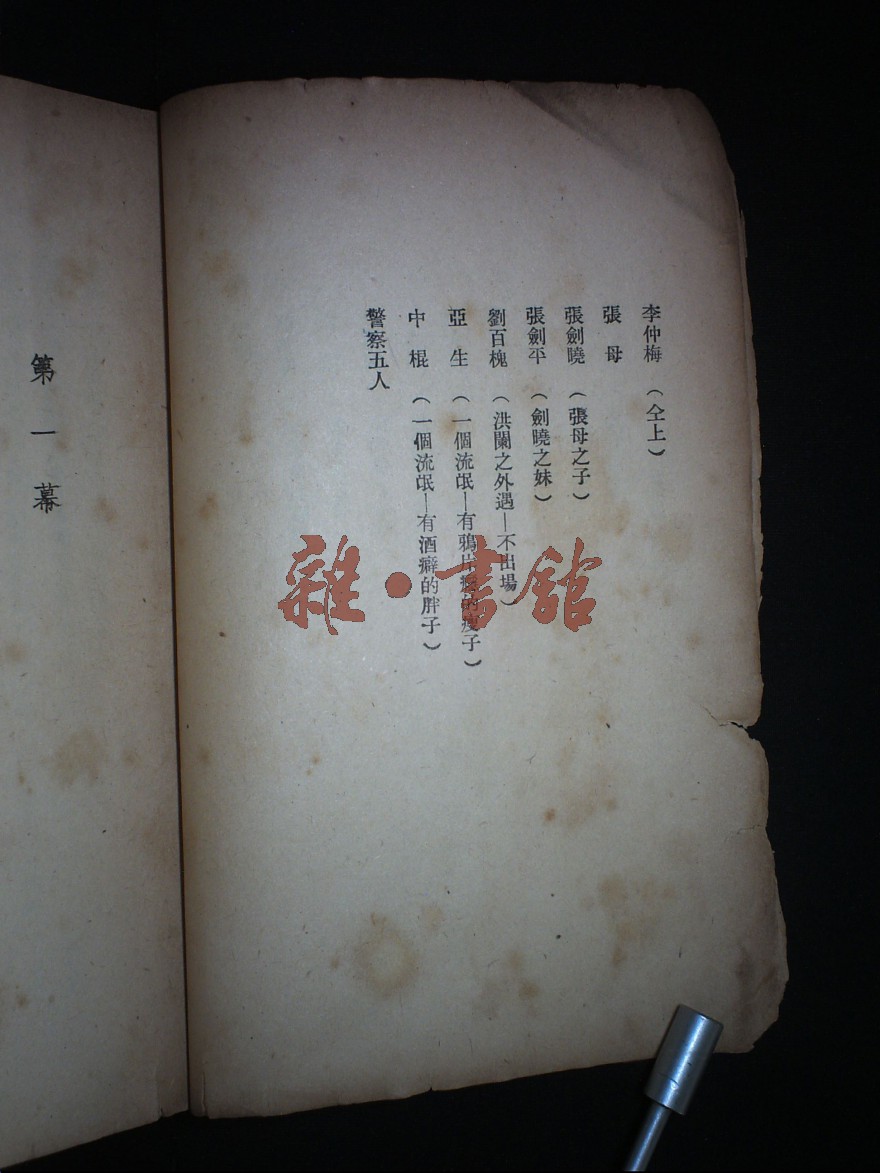 李仲梅 (仝上)
張母
張劍曉 (張母之子)
張劍平 (劍曉之妹)
劉百槐 (洪闌之外遇—不出場)
亞生 (一個流氓—有鴉片癮的瘦子)
中棍 (一個流氓—有酒癖的胖子)
警察五人
第一幕
雜·書館